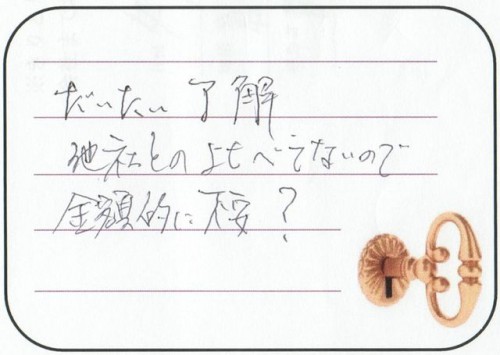 だいたい了解
他社とのよもべてないので
金額的に不安?